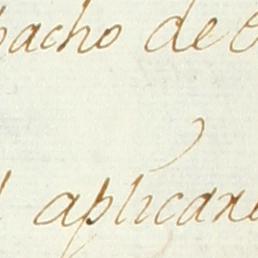 pacho de
aplicare